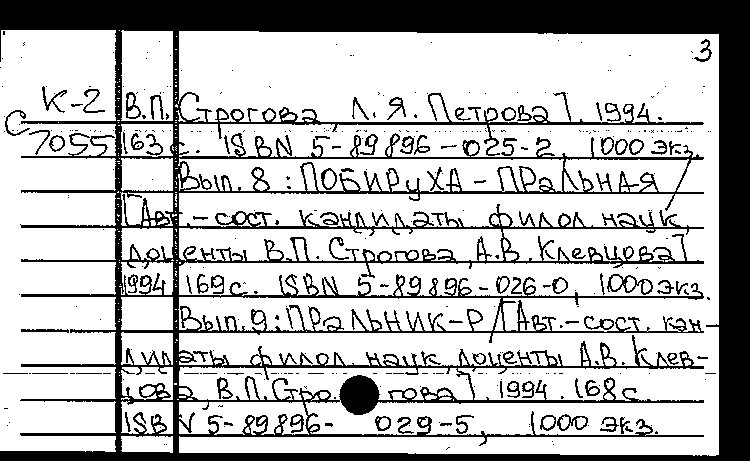 3
К-2 В.П. Строгова, Л. Я. Петрова]. 1994.
С 7055 163 с. ISBN 5-89896-025-2, 1000 экз.
Вып. 8 : ПОБИРуХА - ПРаЛЬНАЯ /
[Авт.-сост. кандидаты филол. наук,
доценты В.П. Строгова, А.В. Клевцова]
1994 169 с. ISBN 5-89896-026-0, 1000 экз.
Вып. 9 : ПРаЛЬНИК-Р / [Авт.-сост. кан-
дидаты филол. наук, доценты А.В. Клев-
цова, В.П. Строгова]. 1994. 168 с
ISBN 5-89896-029-5, 1000 экз.